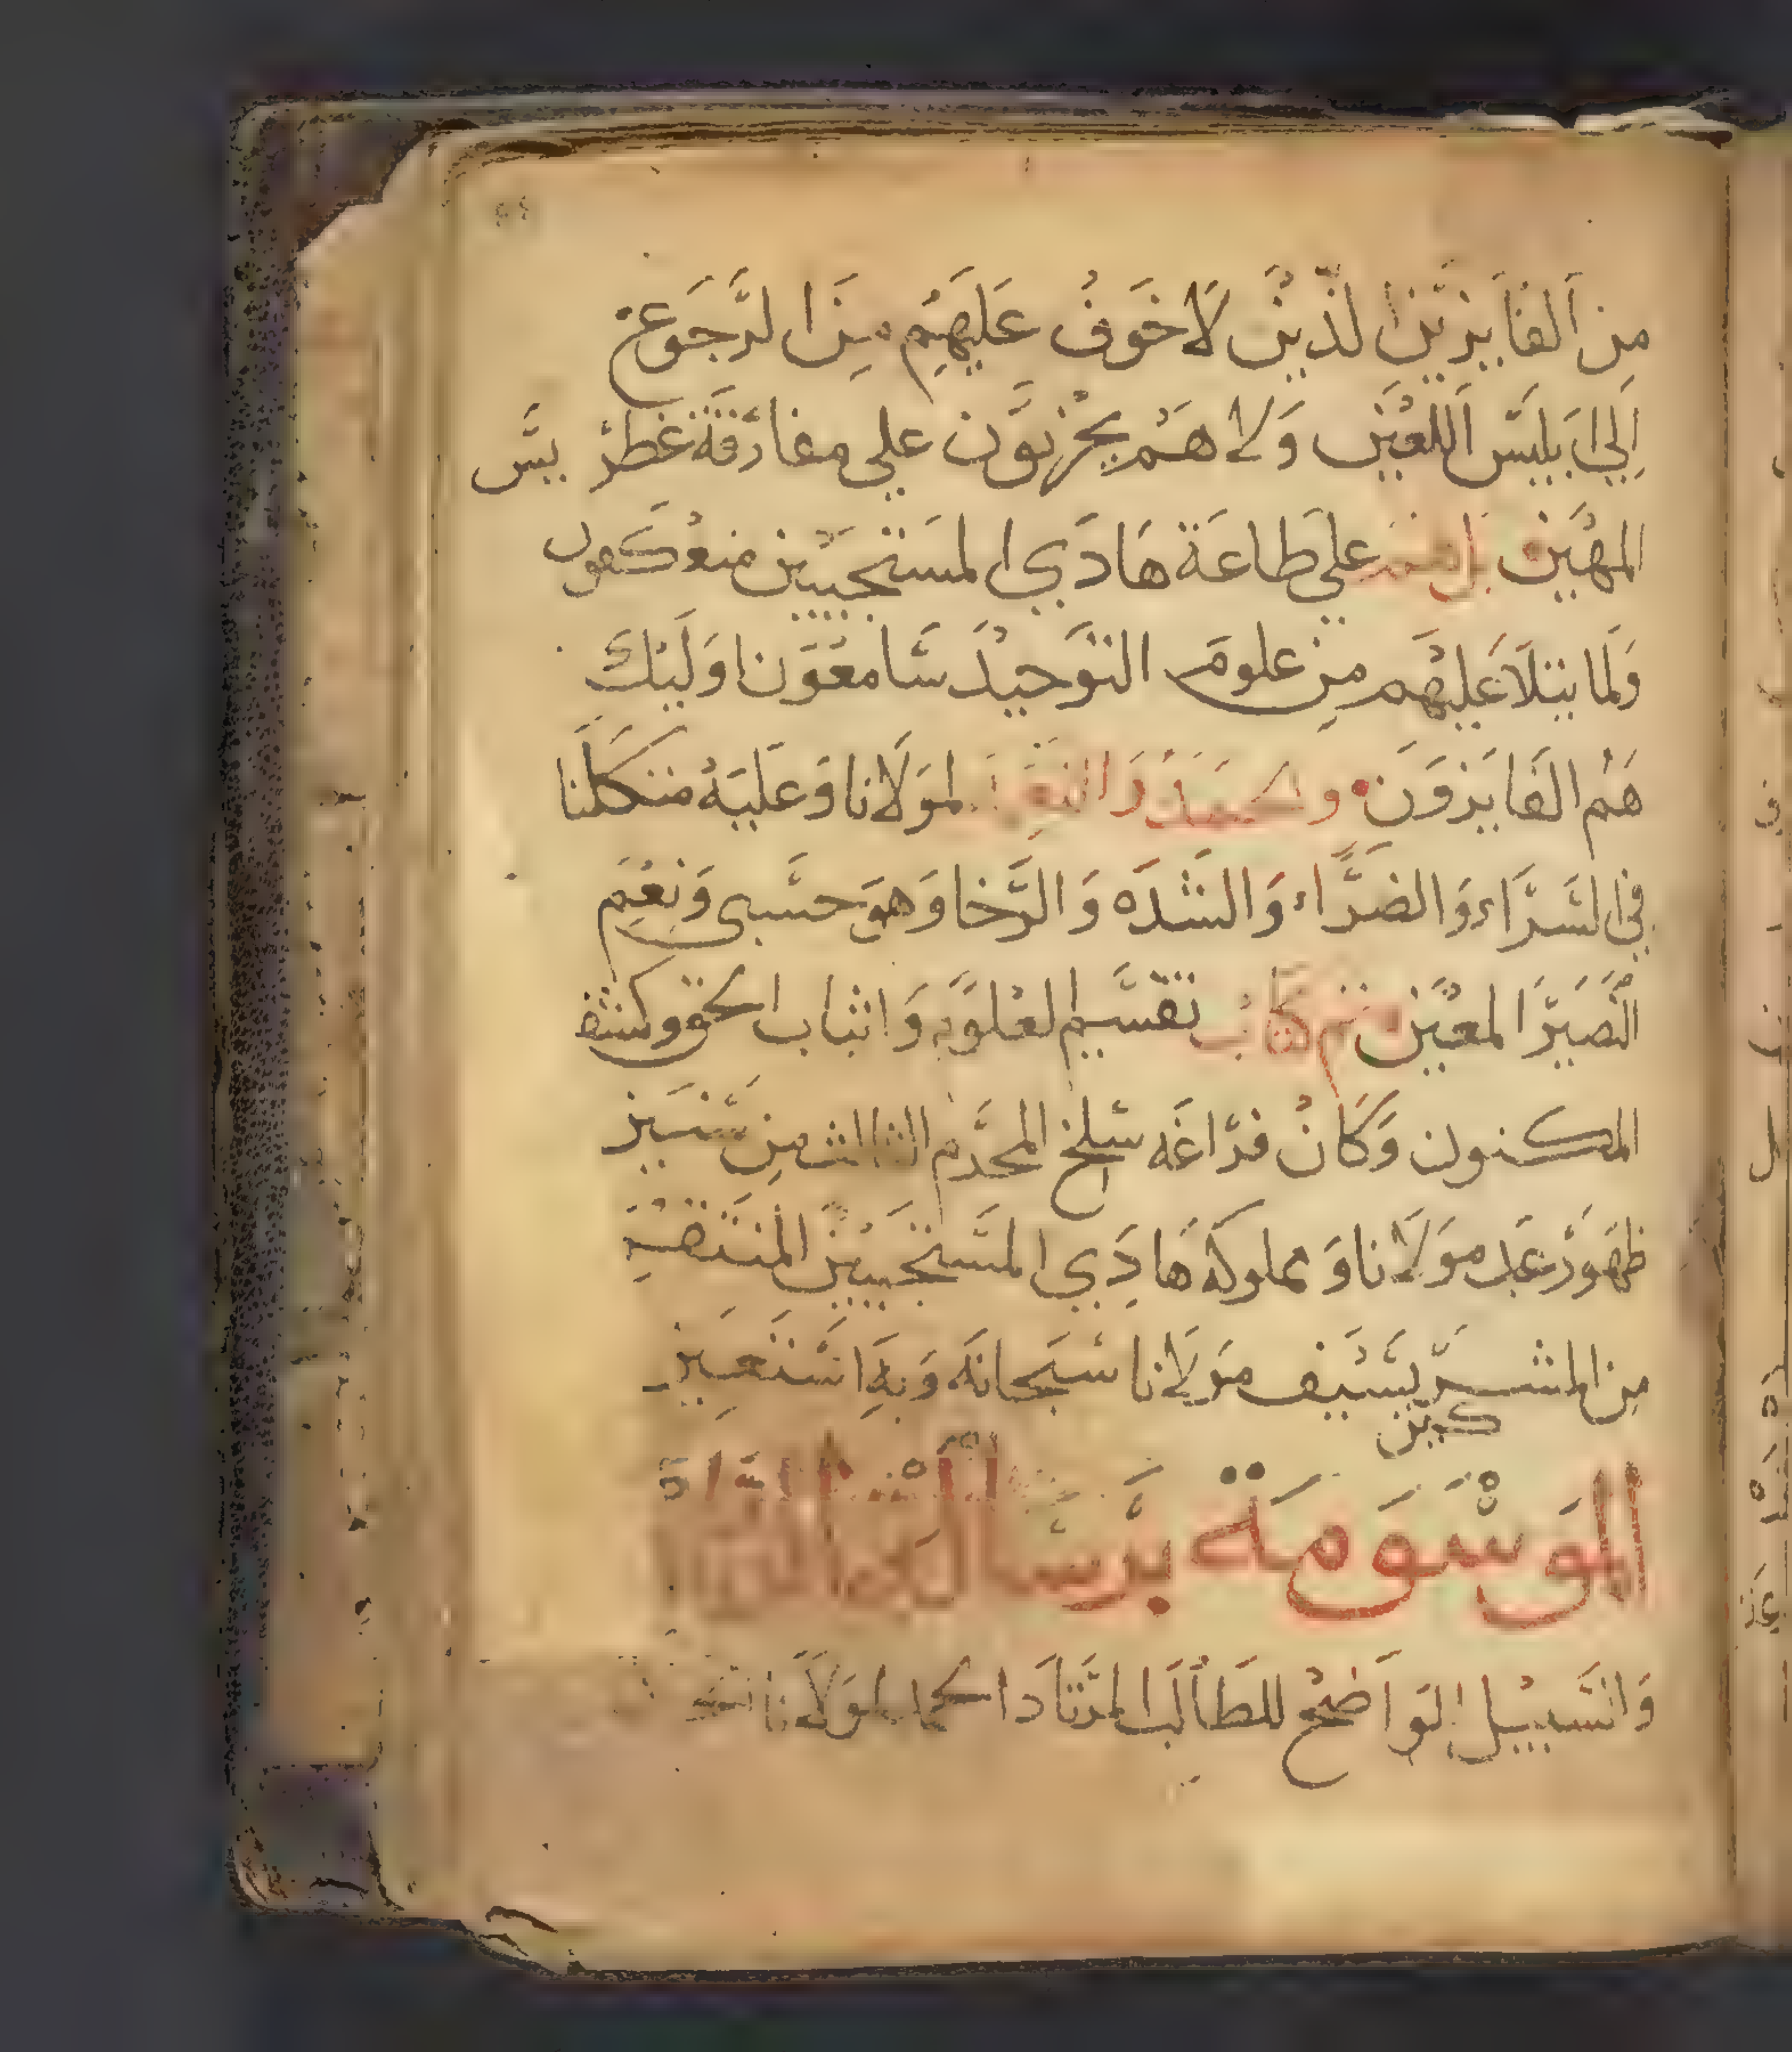 مِن اَلفَايزيَن الذّيِن لَا خَوفُ عَليَهِم مِنَ الرَّجَوع
اِلي اَبليَسّ اَللعَيَن وَلا هَم يحزنوَن علي مفارَقَة غطرَيسّ
المهَين بل هم علي طَاعَة هَادَي المسَتجيَبين منعكَفون
وَلمَا يتلَا عَليهَم مِن علومَ التوَحيدَ سَّامعَوَن اوَليَك
هَم الفَايزوَن والحمد والشكر لموَلَانا وَعَليَه متكَلنا
في السَّرَّاء وَالضرَّاء وَالشَّدَه وَالرَّخا وَهوَ حسَّبي وَنِعَم
النَّصَيرَ المعَيَن تم كتاب تقسَّيم العَلوَم وَاثباب الحق وكشف
المكنون وَكَانَ فرَاغَه سَّلخ المحَرَّم الثالث مِن سَّنيَن
ظهَوَر عَبد موَلَانا وَمملوكَه هَادَي المسَّتجَيبيَن المنتقَم
مِن المشرَ كين بسَّيَف موَلَانا سَّبحَانَه وَبهَ اسَّتعَين
الموَسَّوَمَة برَسَّالة
وَالسَّبيَل الوَاضَح للطَالَب المرَتَادَ الحمد لموَلَانا